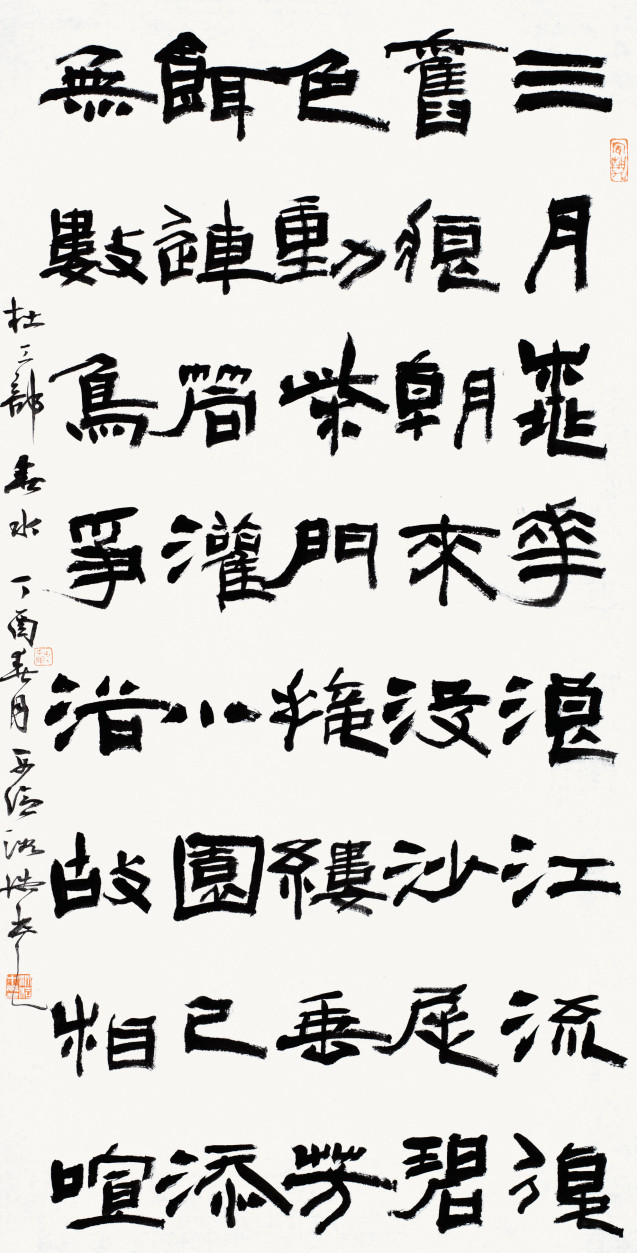 三月桃花浪江流復
舊痕朝來沒沙尾碧
色動柴門接縷垂芳
餌連筒灌小園已添
無數鳥爭浴故相喧
杜工部 春水 丁酉春月